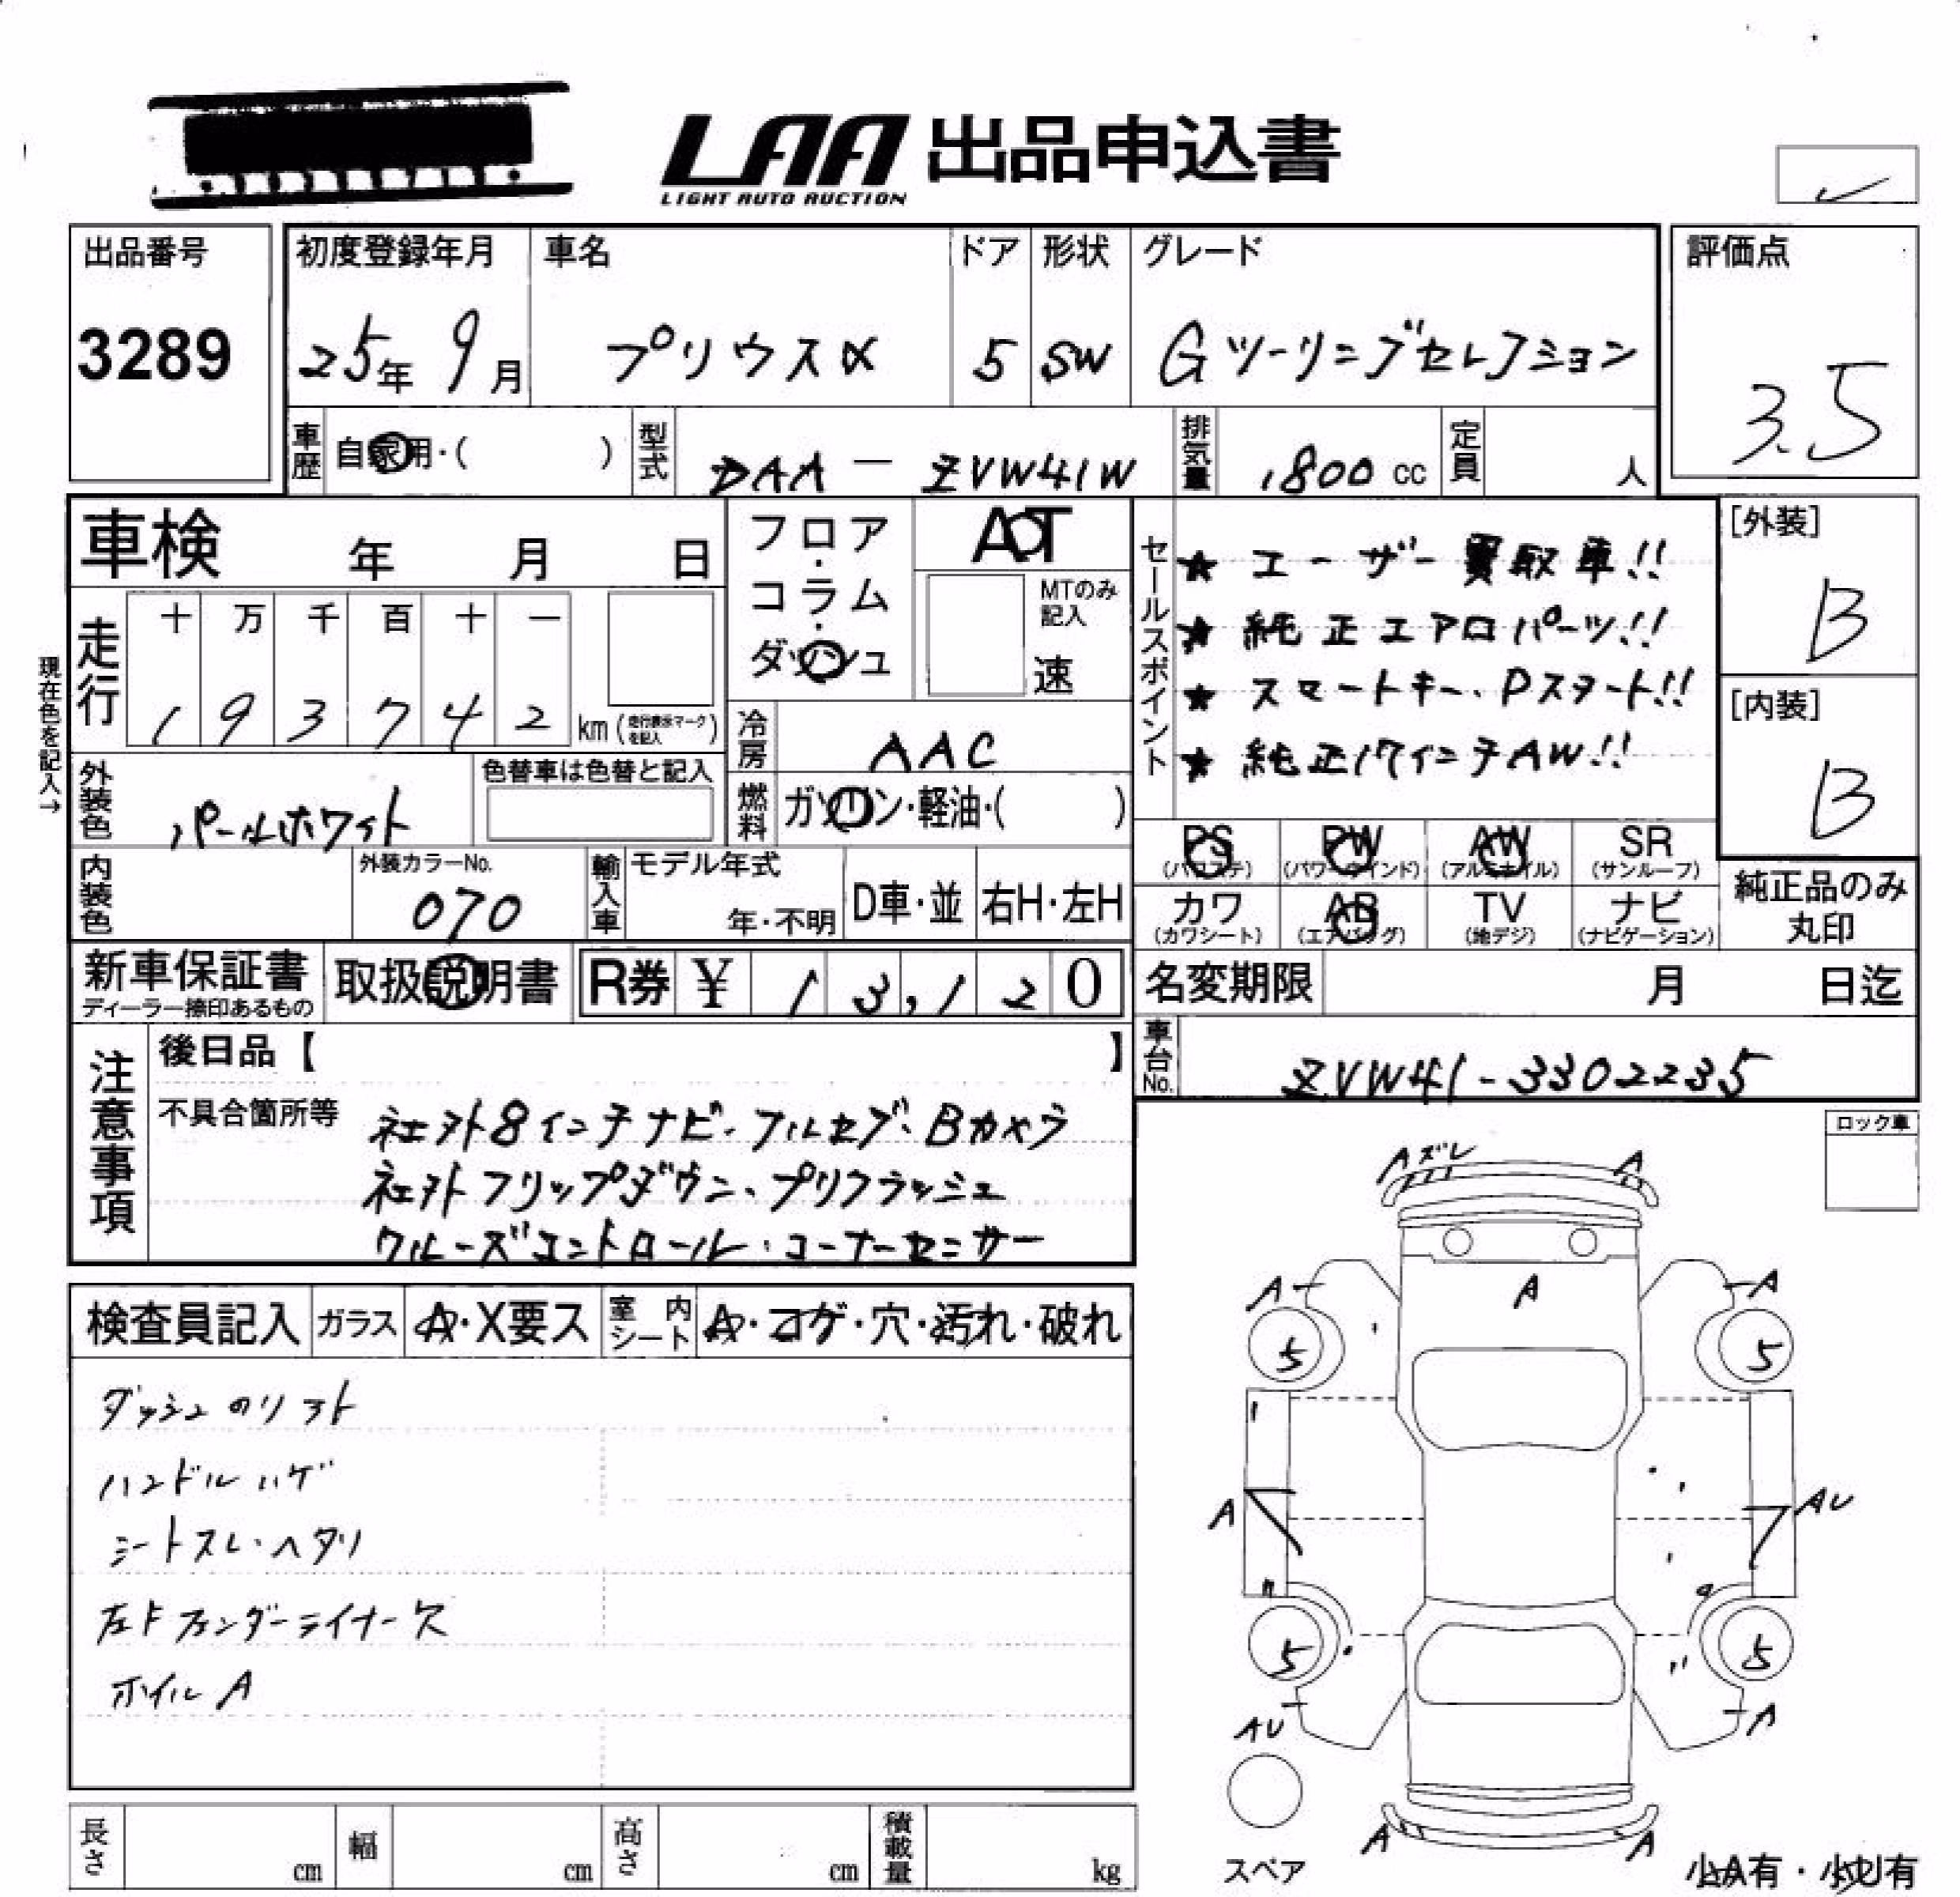 LAA 出品申込書
LIGHT AUTO AUCTION
出品番号
3289
初度登録年月
25年 9月
車名
プリウスα
ドア
5
形状
SW
グレード
Gツーリングセレクション
評価点
3.5
車歴
自家用・( )
型式
DAA - ZVW41W
排気量
1800 cc
定員
人
車検 年 月 日
フロア・コラム・ダッシュ
AT
MTのみ記入
速
セールスポイント
★ ユーザー買取車!!
★ 純正エアロパーツ!!
★ スマートキー、Pスタート!!
★ 純正17インチAW!!
[外装]
B
[内装]
B
現在色を記入→
走行
十 万 千 百 十 一
1 9 3 7 4 2 km (走行表示マークを記入)
冷房
AAC
外装色
パールホワイト
色替車は色替と記入
燃料
ガソリン・軽油・( )
PS (パワステ)
PW (パワーウインド)
AW (アルミホイル)
SR (サンルーフ)
カワ (カワシート)
AB (エアバッグ)
TV (地デジ)
ナビ (ナビゲーション)
純正品のみ丸印
内装色
外装カラーNo.
070
輸入車
モデル年式
年・不明
D車・並
右H・左H
新車保証書
ディーラー捺印あるもの
取扱説明書
R券 ¥ 1 3,1 2 0
名変期限 月 日迄
車台No.
ZVW41-3302235
注意事項
後日品【 】
不具合箇所等
社外8インチナビ・フルセグ・Bカメラ
社外フリップダウン、プリクラッシュ
クルーズコントロール・コーナーセンサー
ロック車
検査員記入
ガラス
A・X要ス
室内シート
A・コゲ・穴・汚れ・破れ
ダッシュのリフト
ハンドルハゲ
シートスレ・ヘタリ
左Fフェンダーライナー欠
ホイルA
Aズレ
A
A
A
A
5
5
A
AU
5
5
AU
A
A
A
スペア
小A有・小U有
長さ cm
幅 cm
高さ cm
積載量 kg